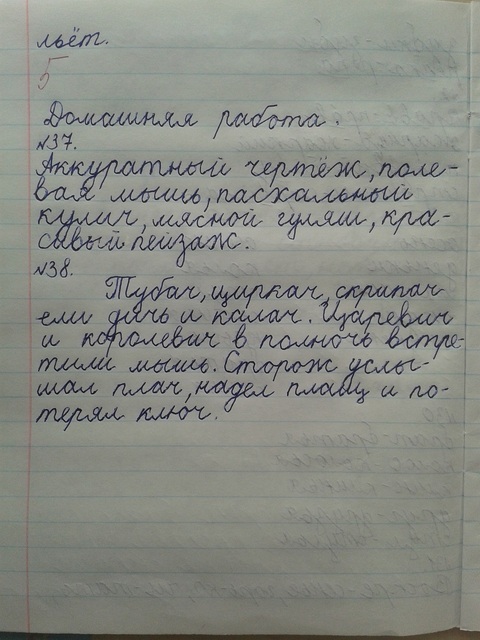 льёт.
5
Домашняя работа.
№37.
Аккуратный чертёж, поле-
вая мышь, пасхальный
кулич, мясной гуляш, кра-
сывый пейзаж.
№38.
Тубач, щиркач, скрипач
ели дичь и калач. Царевич
и королевич в полночь встре-
тили мышь. Сторож услы-
шал плач, надел плащ и по-
терял ключ.